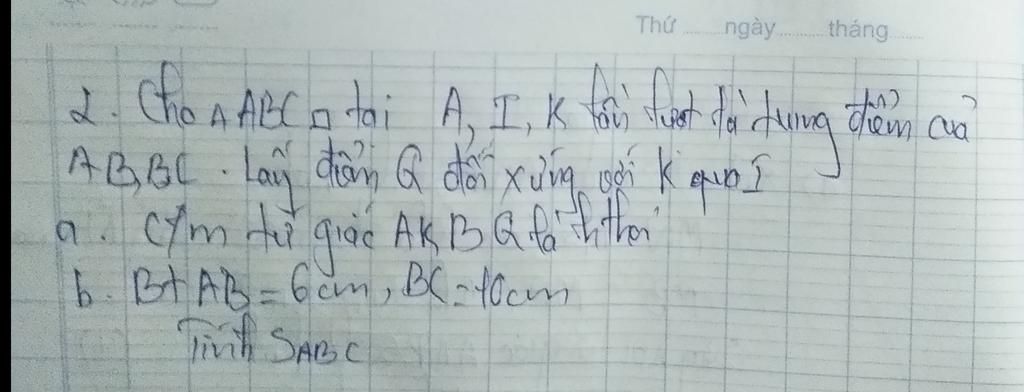 Thứ ngày tháng
2. Cho △ABC □ tại A, I, K lần lượt là trung điểm của
AB, BC. Lấy điểm Q đối xứng với K qua I
a. C/m tứ giác AKBQ là hthoi
b. Bt AB = 6cm, BC = 10cm
Tính SABC